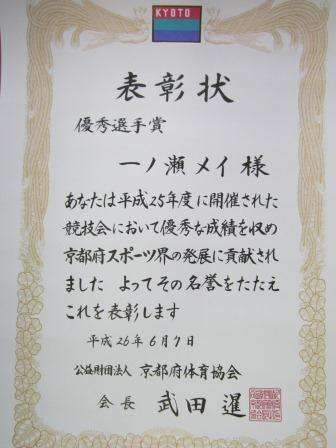 KYOTO
表彰状
優秀選手賞
一ノ瀬メイ様
あなたは平成25年度に開催された
競技会において優秀な成績を収め
京都府スポーツ界の発展に貢献され
ました よってその名誉をたたえ
これを表彰します
平成26年6月7日
公益財団法人 京都府体育協会
会長 武田 暹